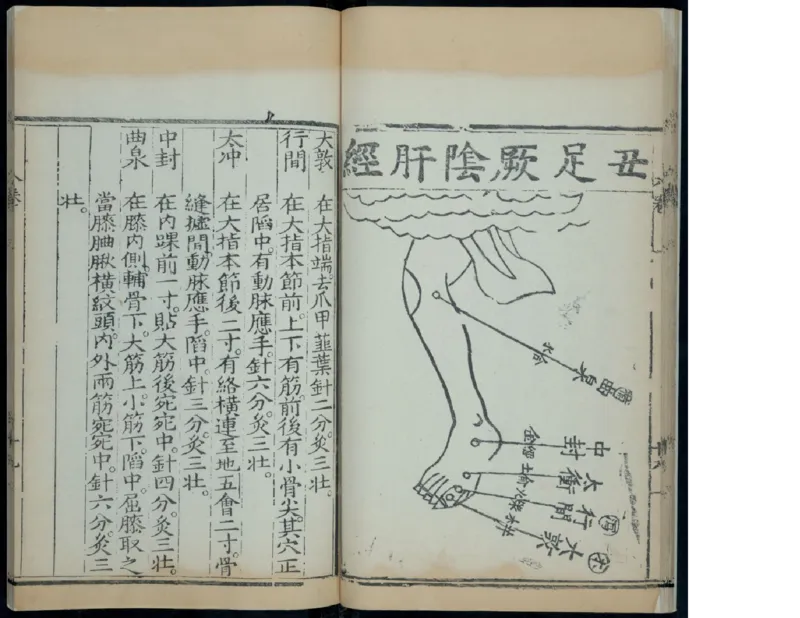 丑足厥陰肝經
合水
曲泉
中封
太衝
行間
大敦
大敦　在大指端。去爪甲韮葉針二分。灸三壯。
行間　在大指本節前。上下有筋。前後有小骨尖。其穴正
居陷中。有動脉應手。針六分。灸三壯。
太冲　在大指本節後二寸。有絡橫連至地五會二寸。骨
縫罅間動脉應手。陷中。針三分。灸三壯。
中封　在內踝前一寸。貼大筋後宛宛中。針四分。灸三壯。
曲泉　在膝內側。輔骨下。大筋上。小筋下。陷中。屈膝取之
當膝曲䐐橫紋頭。內外兩筋宛宛中。針六分。灸三
壯。